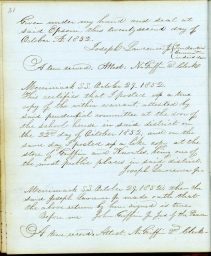 Given under my hand and seal at
said Epsom this twenty second day of
October A.D. 1852.
Joseph Lawrence Jr
A true record, Attest. N. Griffin T. Clerk
Merrimack SS. October 29, 1852.
This certifies that I posted up a true
copy of the within warrant attested by
said prudential committee at the door of
the school house in said district on the
22nd day of October 1852, and on the
same day I posted up a like copy at the
store of Griffin and being one of
the most public places in said district.
Joseph Lawrence Jr.
Merrimack SS October 29, 1852, then the
said Joseph Lawrence Jr made oath that
the above return by him signed is true
Before me John Griffin Jus of the Peace
A true record, Attest N. Griffin T. Clerk